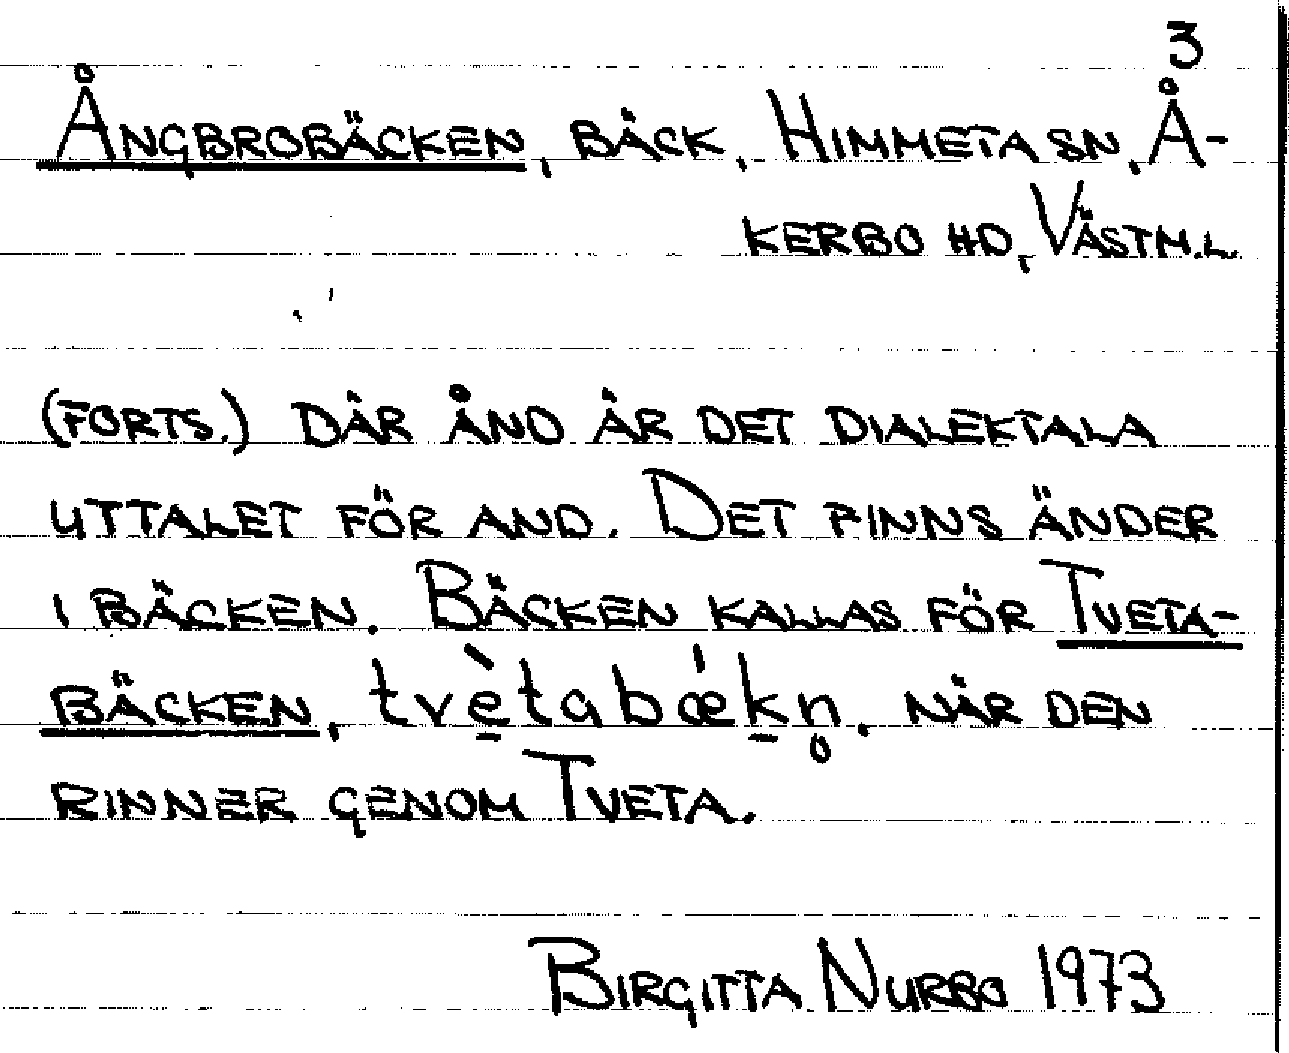 3
Ångbrobäcken, bäck, Himmeta sn, Å-
kerbo hd, Västm.l.
(forts.) där ånd är det dialektala
uttalet för and. Det finns änder
i bäcken. Bäcken kallas för Tveta-
bäcken, tvè̱tabǽḵn̥, när den
rinner genom Tveta.
Birgitta Nurbo 1973